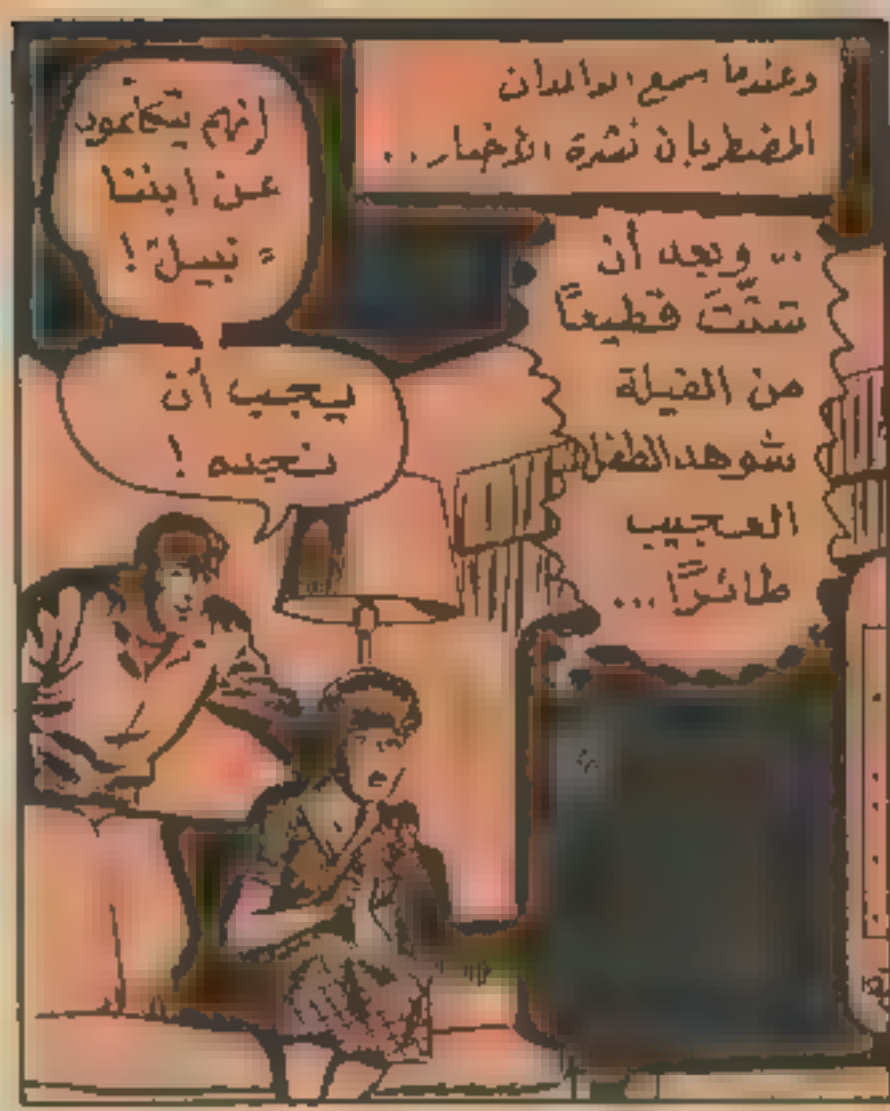 وعندما سمع الوالدان
المضطربان نشرة الأخبار..
.. وبعد أن
شتّت قطيعاً
من الفيلة
شوهد الطفل
العجيب
طائراً...
إنهم يتكلمون
عن ابننا
"نبيل"!
يجب أن
نجده!